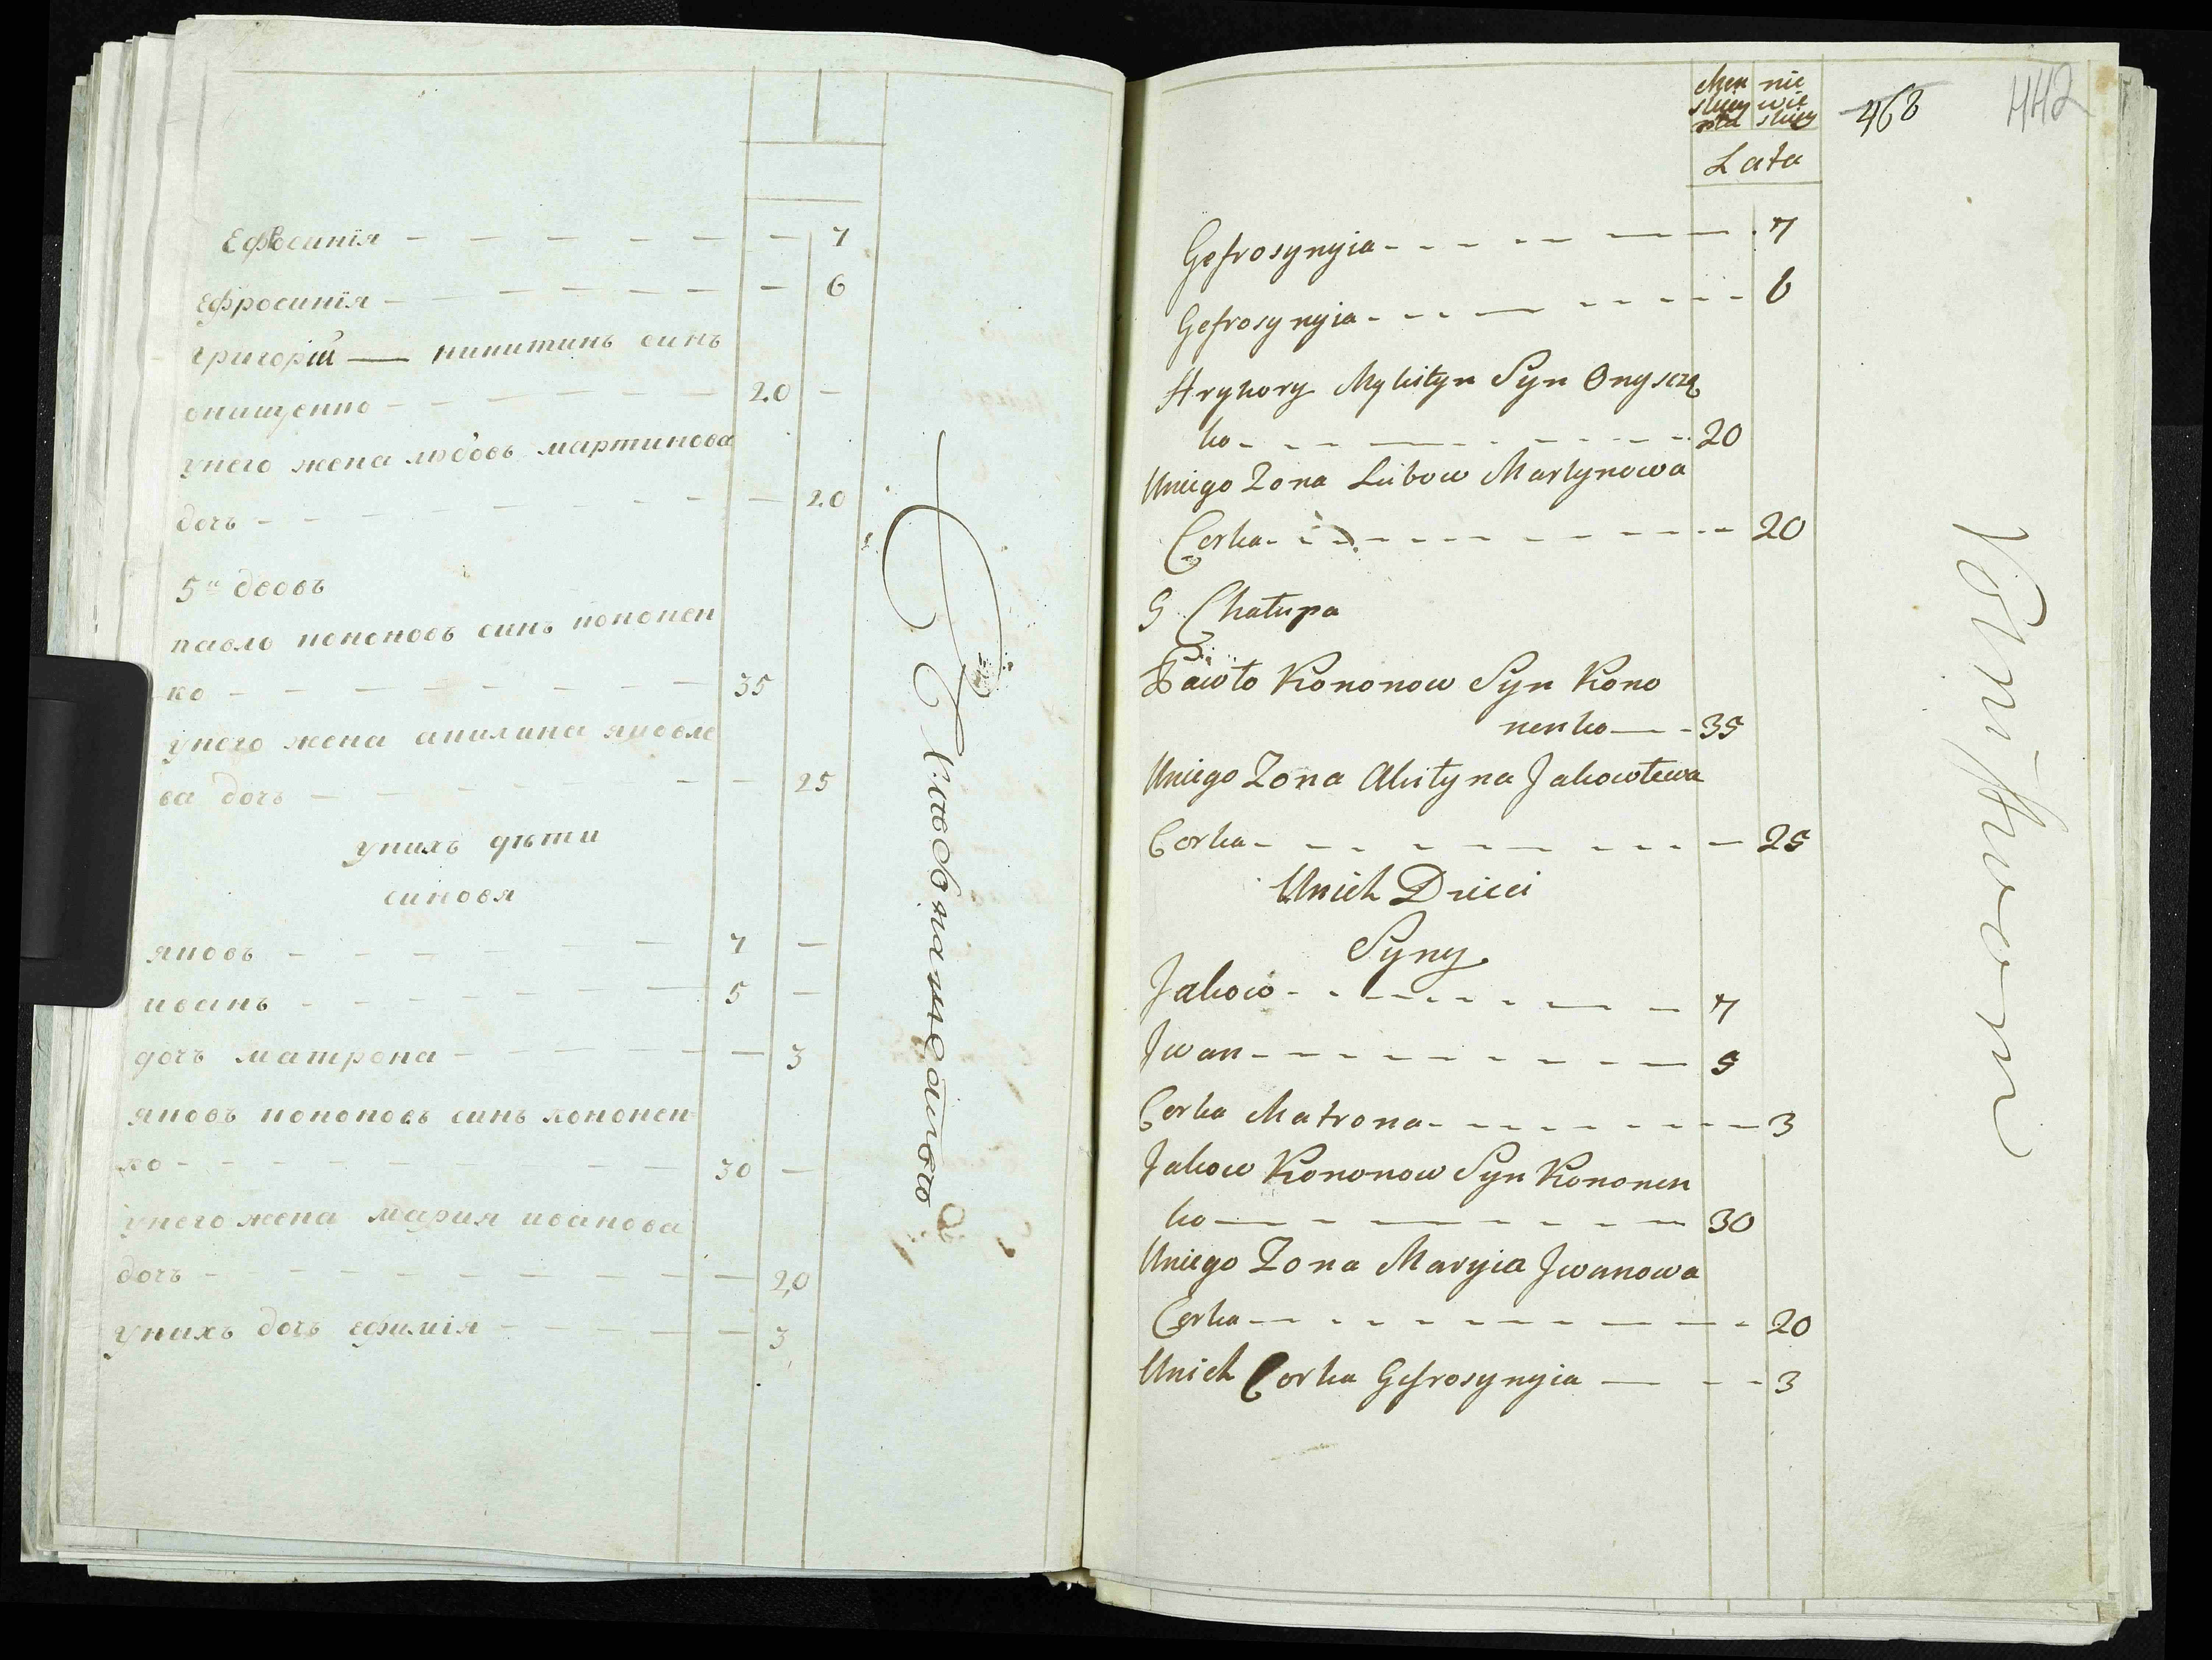 Ефросинїя — — — — — — — 7
ефросинїя — — — — — — — 6
григорїй — никитинъ синъ
онищенко — — — — — — 20 —
унего жена любовь мартинова
дочъ — — — — — — — — 20
5й дворъ
павло кононовъ синъ кононен
ко — — — — — — — 35
унего жена акилина яковле
ва дочъ — — — — — — — 25
унихъ дѣти
синовя
яковъ — — — — — — 7 —
иванъ — — — — — — 5 —
дочъ матрона — — — — — — 3
яковъ кононовъ синъ кононен
ко — — — — — — — — 30 —
унего жена мария иванова
дочъ — — — — — — — — — 20
унихъ дочъ ефимїя — — — — — 3
468
442
Lata
Gefrosynyia - - - - - — — - 7
Gefrosynyia - - - — - - - - - 6
Hrykory Mykityn Syn Onyszcze
ko - - - — - - - - - - 20
Uniego Zona Lubow Martynowa
Corka - - - - - - - - — - - 20
5 Chałupa
Pawło Kononow Syn Kono
nenko — - 35
Uniego Zona Akiłyna Jakowlewa
Corka - - - - - — - - - — 25
Unich Dzieci
Syny
Jakow - - - - - - - — — 7
Jwan - - - - - - - — — 5
Corka Matrona - - - - - - - - — 3
Jakow Kononow Syn Kononen
ko — - — — - - - — 30
Uniego Zona Maryia Jwanowa
Corka — - - - - - - — — - - 20
Unich Corka Gefrosynyia — - - 3